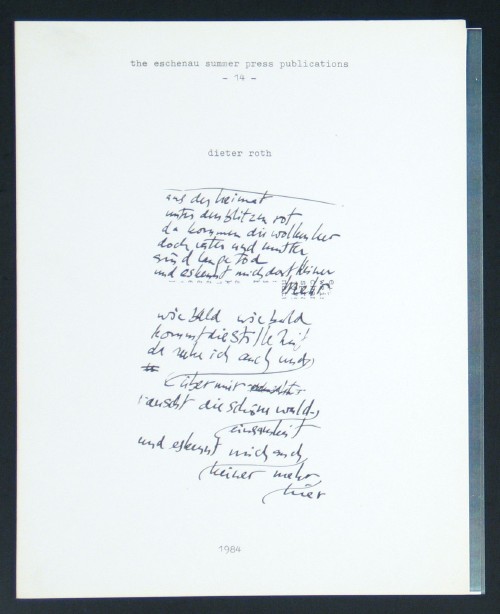 the eschenau summer press publications
- 14 -
dieter roth
aus der heimat
unter den blitzen rot
da kommen die wolken her
doch vater und mutter
sind lange tod
und es kennt mich dort keiner
mehr
wie bald wie bald
kommt die stille zeit
da ruhe ich auch und
über mir
rauscht die schöne wald
einsamkeit
und es kennt mich auch
keiner mehr
hier
1984